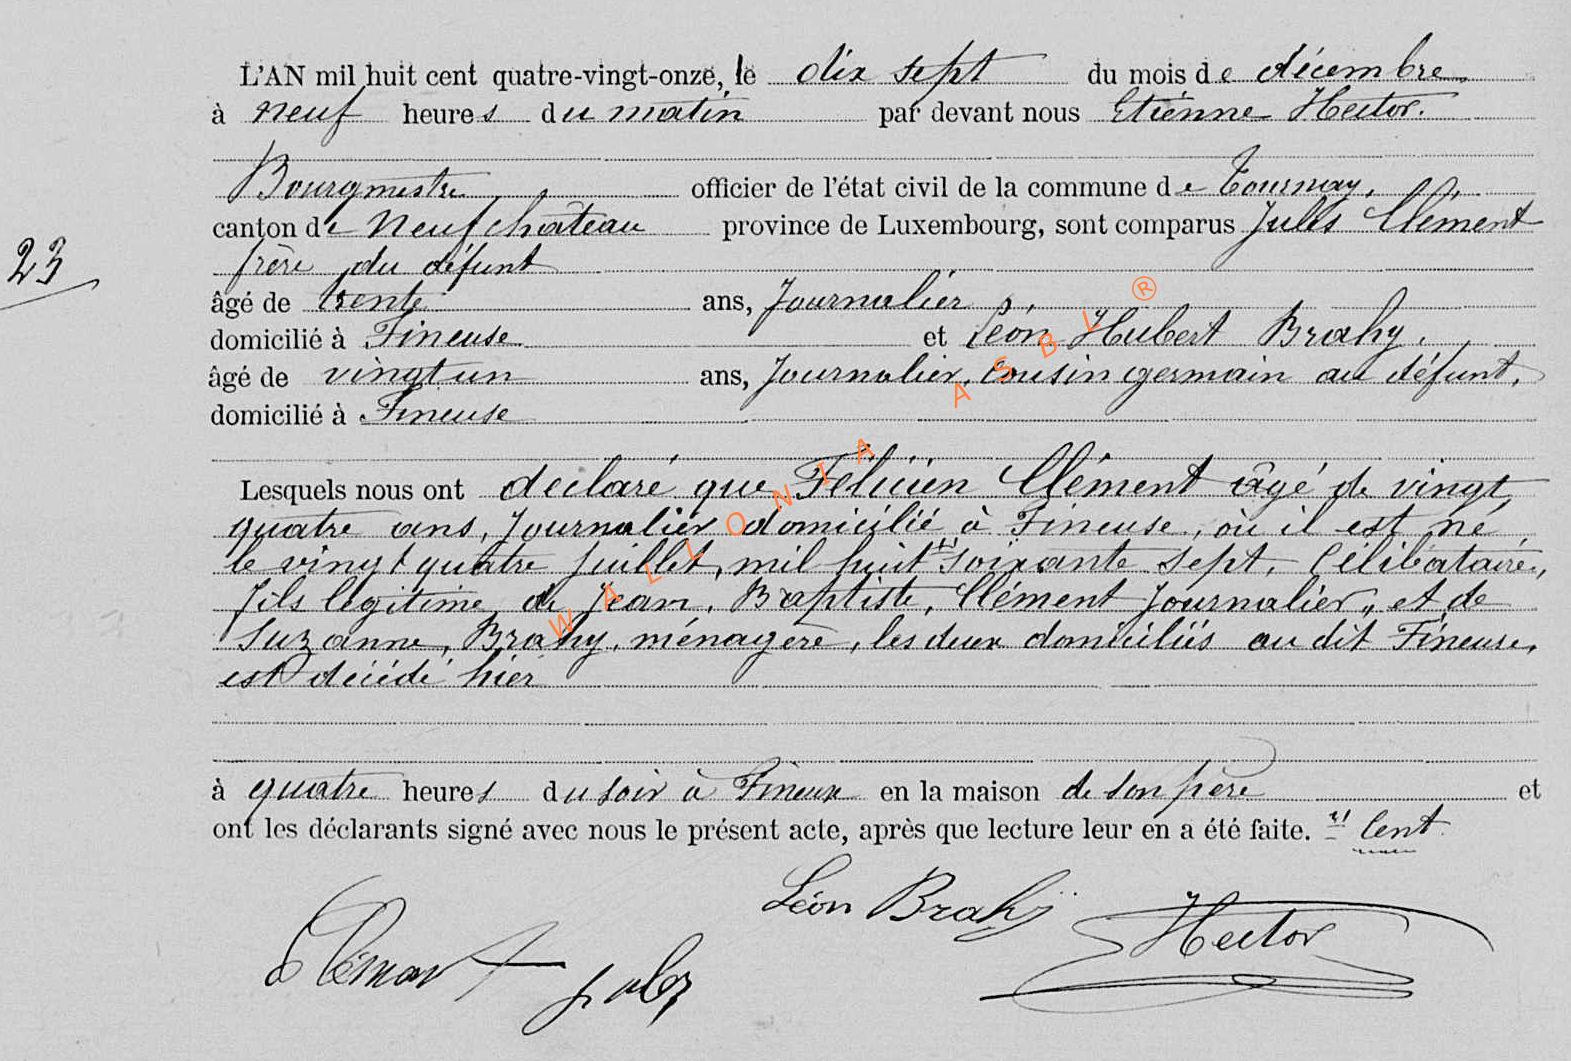 L'AN mil huit cent quatre-vingt-onze, le dix sept du mois de décembre
à neuf heures du matin par devant nous Etienne Hector.
Bourgmestre officier de l'état civil de la commune de Tournay,
canton de Neufchâteau province de Luxembourg, sont comparus Jules Clément
23
frère du défunt
âgé de trente ans, Journalier,
domicilié à Fineuse et Léon Hubert Brahy,
âgé de vingt un ans, Journalier, cousin germain au défunt,
domicilié à Fineuse
Lesquels nous ont déclaré que Félicien Clément âgé de vingt
quatre ans, Journalier domicilié à Fineuse, où il est né
le vingt quatre juillet, mil huit " soixante sept, Célibataire,
fils légitime de Jean, Baptiste, Clément Journalier, et de
Suzanne, Brahy, ménagère, les deux domiciliés au dit Fineuse,
est décédé hier
à quatre heures du soir à Fineux en la maison de son père et
ont les déclarants signé avec nous le présent acte, après que lecture leur en a été faite. " Cent
Léon Brahy Hector
Clément Jules
WALLONIA ASBL ®